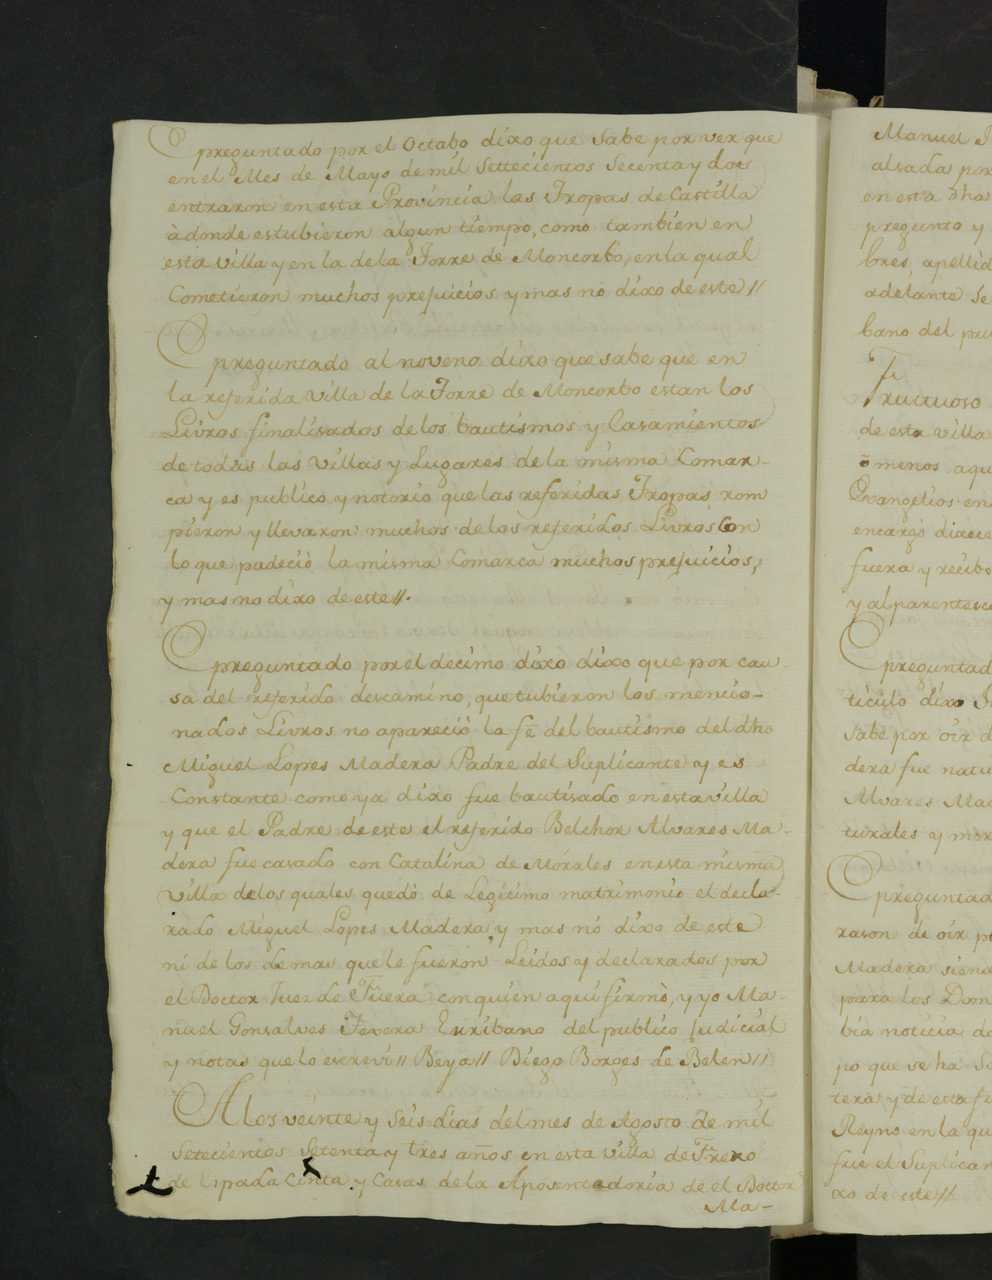 preguntado por el Octabo dixo que Sabe por ver que
en el Mes de Mayo de mil Settecientos Secenta y dos
entraron en esta Provincia las Tropas de Castilla
àdonde estubieron algun tiempo, como tambien en
esta Villa y en la de la Torre de Moncorbo, en la qual
Cometieron muchos prejuicios y mas nó dixo de este //
preguntado al noveno dixo que sabe que en
la referida Villa de la Torre de Moncorbo estan los
Livros finalisados de los bautismos y Casamientos
de todas las Villas y Lugares de la misma Comar-
ca y es publico y notorio que las referidas Tropas rom
pieron y llevaron muchos de los referidos Livros Con
lo que padeció la misma Comarca muchos prejuicios,
y mas no dixo de este //.
preguntado por el decimo dixo dixo que por cau-
sa del referido descamino, que tubieron los mencio-
nados Livros no apareció la fe del bautismo del dho
Miguel Lopes Madera Padre del Suplicante y es
Constante como ya dixo fue bautisado en esta villa
y que el Padre de este el referido Belchor Alvares Ma-
dera fue casado con Catalina de Mórales en esta misma
Villa de los quales quedó de Legitimo matrimonio el decla-
rado Miguel Lopes Madera, y mas nó dixo de este
ni de los demas que le fueron Leidos y declarados por
el Doctor Juez de Fuera con quien aqui firmó, y yo Ma-
nuel Gonsalves Tavera Escribano del publico Judicial
y notas que lo escreví // Beya // Diego Borges de Belen //
A los veinte y Seis dias del mes de Agosto de mil
Setecientos Setenta y tres años en esta Villa de Frexo
de Espada Cinta y Casas de la Aposentadoria de el Doctor
Ma-
Manuel
alsada por
en esta dha
pregunto y
bres, apellid
adelante Se
bano del pu
Frutuoso
de esta Villa
menos aqu
Evangelios en
encargó
fuera y recibo
y al parentesco
preguntad
ticulo dixo
Sabe por oir d
dera fue natu
Alvares Mad
turales y mor
preguntad
rason de oir po
Madera siend
para los Dom
bia noticia de
po que se ha
tera y de esta
Reyno en la qu
fue el Suplican
xo de este //